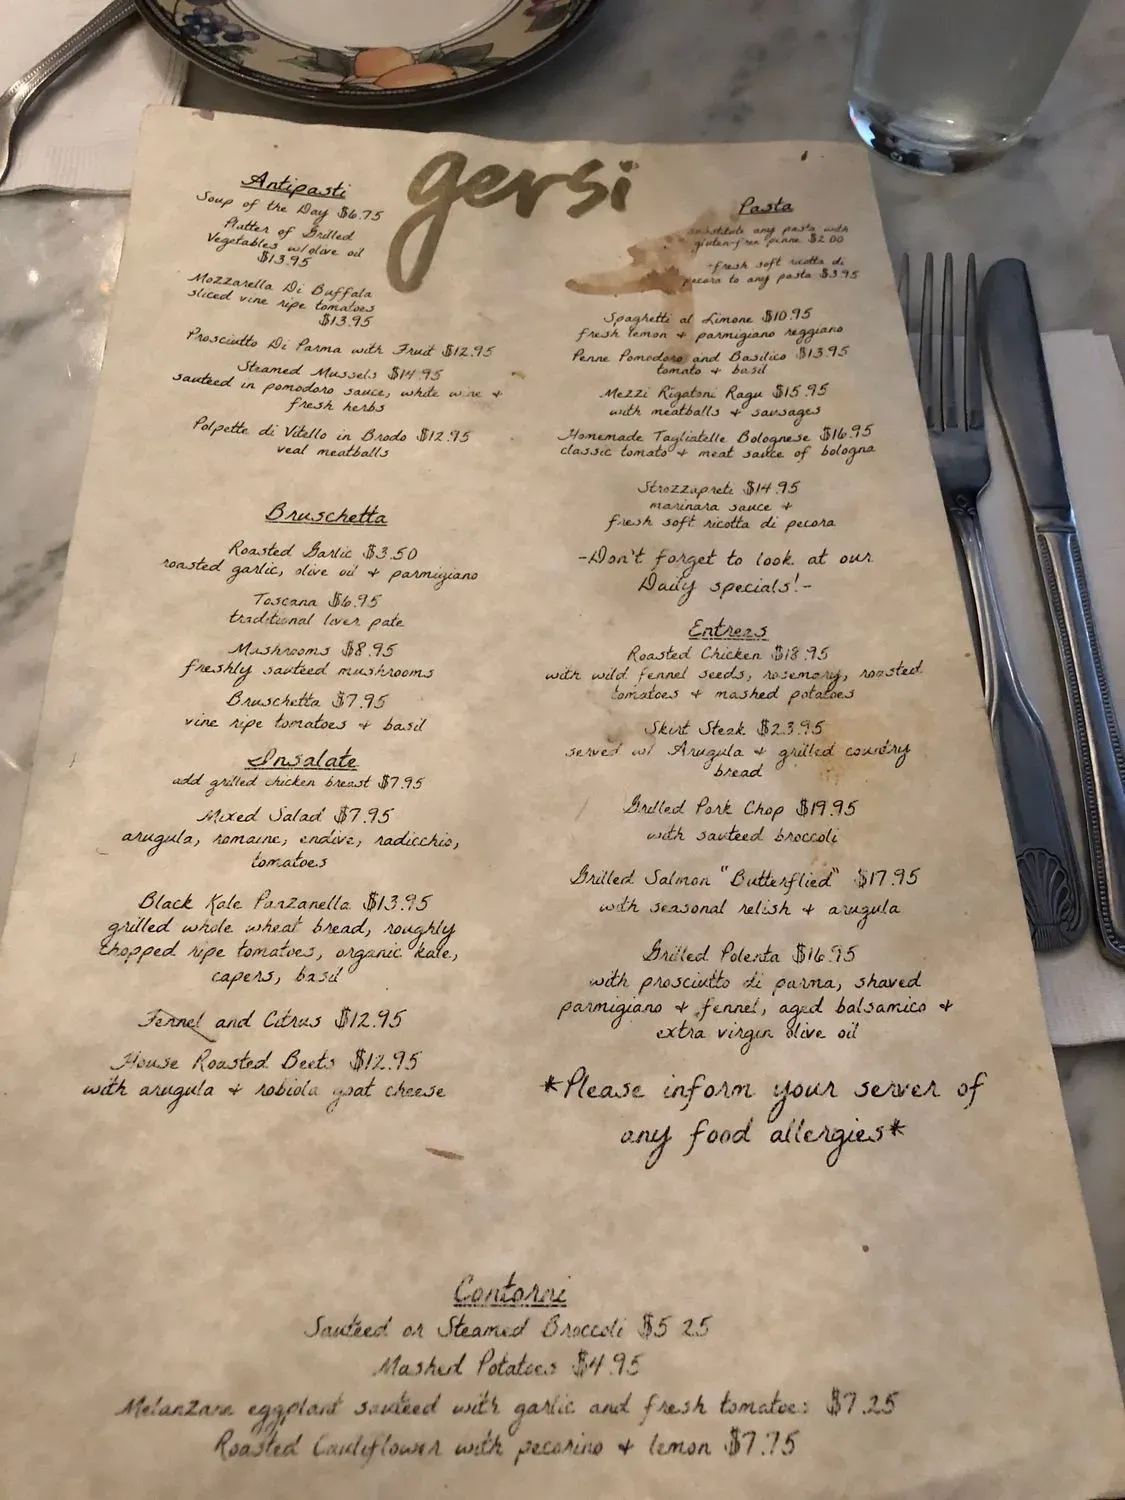 gersi
Antipasti
Soup of the Day $6.75
Platter of Grilled
Vegetables w/olive oil
$13.95
Mozzarella Di Buffala
sliced vine ripe tomatoes
$13.95
Prosciutto Di Parma with Fruit $12.95
Steamed Mussels $14.95
sauteed in pomodoro sauce, white wine +
fresh herbs
Polpette di Vitello in Brodo $12.95
veal meatballs
Bruschetta
Roasted Garlic $3.50
roasted garlic, olive oil + parmigiano
Toscana $6.95
traditional liver pate
Mushrooms $8.95
freshly sauteed mushrooms
Bruschetta $7.95
vine ripe tomatoes + basil
Insalate
add grilled chicken breast $7.95
Mixed Salad $7.95
arugula, romaine, endive, radicchio,
tomatoes
Black Kale Panzanella $13.95
grilled whole wheat bread, roughly
chopped ripe tomatoes, organic kale,
capers, basil
Fennel and Citrus $12.95
House Roasted Beets $12.95
with arugula & robiola goat cheese
Pasta
substitute any pasta with
gluten-free penne $2.00
-fresh soft ricotta di
pecora to any pasta $3.95
Spaghetti al Limone $10.95
fresh lemon + parmigiano reggiano
Penne Pomodoro and Basilico $13.95
tomato & basil
Mezzi Rigatoni Ragu $15.95
with meatballs & sausages
Homemade Tagliatelle Bolognese $16.95
classic tomato + meat sauce of bologna
Strozzapreti $14.95
marinara sauce +
fresh soft ricotta di pecora
-Don't forget to look at our
Daily specials!-
Entrees
Roasted Chicken $18.95
with wild fennel seeds, rosemary, roasted
tomatoes & mashed potatoes
Skirt Steak $23.95
served w/ Arugula & grilled country
bread
Grilled Pork Chop $19.95
with sauteed broccoli
Grilled Salmon "Butterflied" $17.95
with seasonal relish + arugula
Grilled Polenta $16.95
with prosciutto di parma, shaved
parmigiano + fennel, aged balsamico +
extra virgin olive oil
*Please inform your server of
any food allergies*
Contorni
Sauteed or Steamed Broccoli $5.25
Mashed Potatoes $4.95
Melanzane eggplant sauteed with garlic and fresh tomatoes $7.25
Roasted Cauliflower with pecorino & lemon $7.75